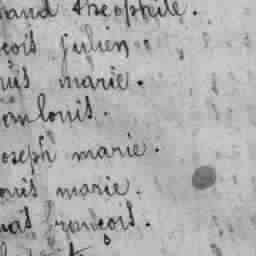 and théophile.
çois julien.
uis marie.
om louis.
oseph marie.
ouis marie.
as françois.